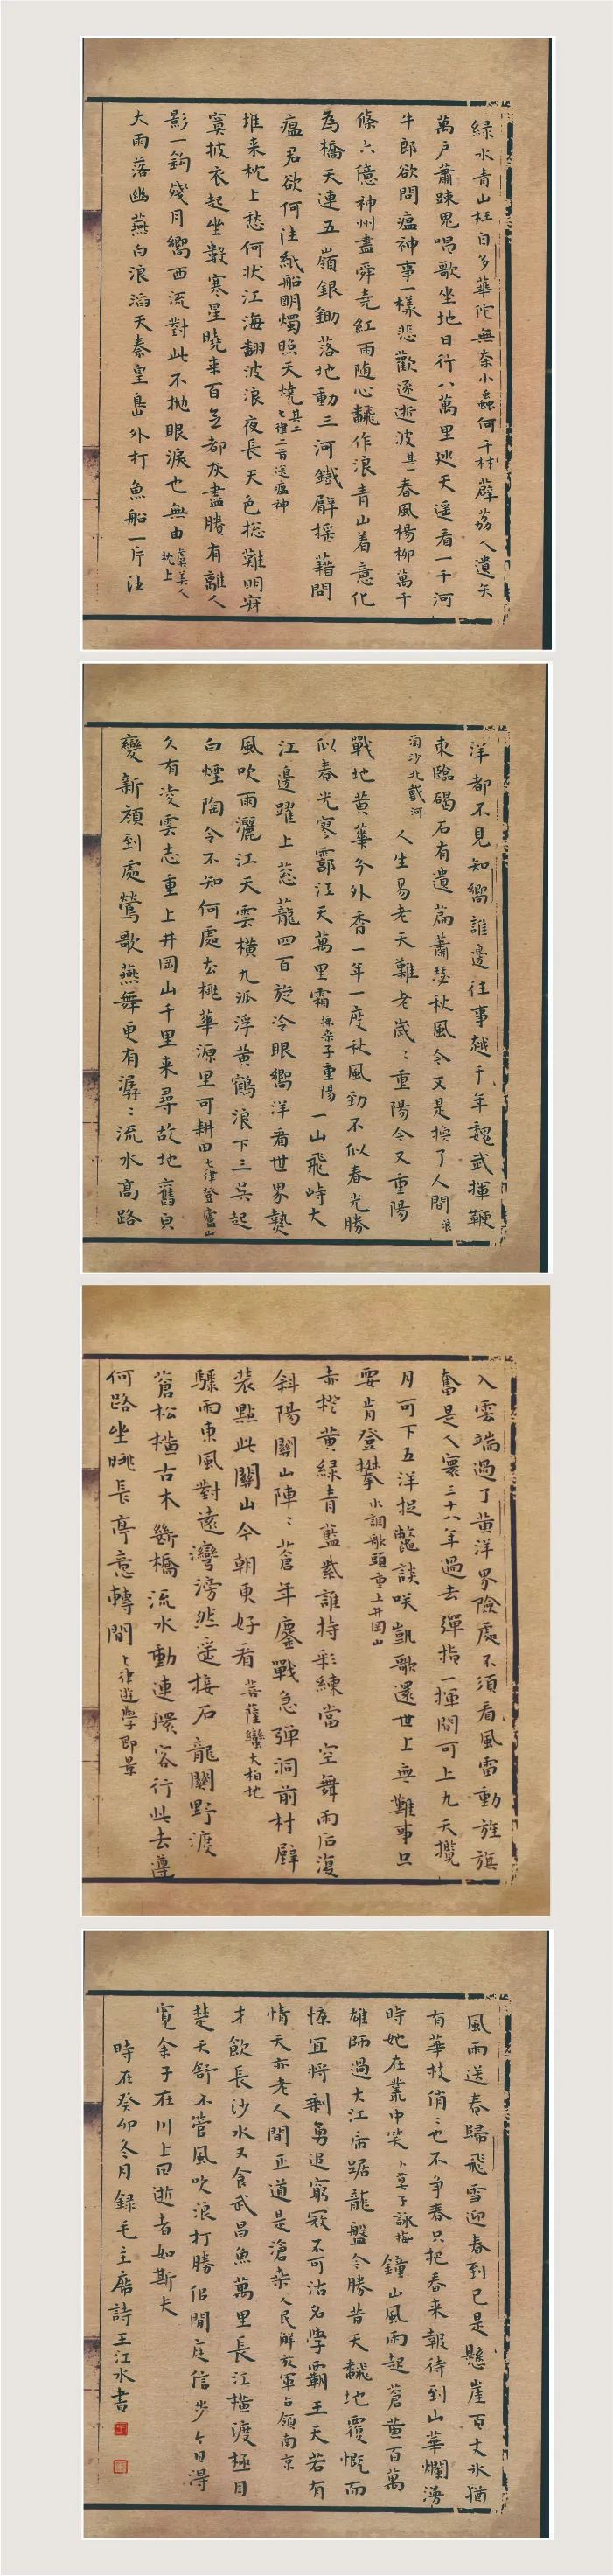 綠水青山枉自多華佗無奈小蟲何千村薜荔人遺矢
萬戶蕭踈鬼唱歌坐地日行八萬里巡天遥看一千河
牛郎欲問瘟神事一樣悲歡逐逝波其一春風楊柳萬千
條六億神州盡舜堯紅雨随心飜作浪青山着意化
為橋天連五嶺銀鋤落地動三河鐵臂摇藉問
瘟君欲何注紙船明燭照天燒其二七律二首送瘟神
堆来枕上愁何狀江海翻波浪夜長天色捴難明寂
寞披衣起坐數寒星曉来百念都灰盡賸有離人
影一鈎殘月嚮西流對此不拋眼淚也無由虞美人枕上
大雨落幽燕白浪滔天秦皇島外打魚船一片汪
洋都不見知嚮誰邊往事越千年魏武揮鞭
東臨碣石有遺篇蕭瑟秋風今又是換了人間浪
淘沙北戴河人生易老天難老歲〻重陽今又重陽
戰地黄華分外香一年一度秋風勁不似春光勝
似春光寥霩江天萬里霜採桑子重陽一山飛峙大
江邊躍上葱蘢四百旋冷眼嚮洋看世界熱
風吹雨灑江天雲橫九派浮黄鶴浪下三吳起
白煙陶令不知何處去桃華源里可耕田七律登廬山
久有凌雲志重上井岡山千里来尋故地舊皃
變新顔到處鶯歌燕舞更有潺〻流水高路
入雲端過了黄洋界險處不須看風雷動旌旗
奮是人寰三十八年過去彈指一揮間可上九天攬
月可下五洋捉鱉談咲凱歌還世上無難事只
要肯登攀水調歌頭重上井岡山
赤橙黄緑青藍紫誰持彩練當空舞雨后復
斜陽關山陣〻蒼年鏖戰急彈洞前村壁
裝點此關山今朝更好看菩薩蠻大柏地
驟雨東風對遠灣滂然遥接石龍關野渡
蒼松橫古木斷橋流水動連環客行此去遵
何路坐眺長亭意轉閒七律遊學即景
風雨送春歸飛雪迎春到已是懸崖百丈冰猶
有華枝俏〻也不争春只把春来報待到山華爛漫
時她在叢中笑卜算子詠梅鐘山風雨起蒼黄百萬
雄師過大江帝踞龍盤今勝昔天飜地覆慨而
慷宜將剩勇追窮寇不可沽名學霸王天若有
情天亦老人間正道是滄桒人民解放軍占領南京
才飲長沙水又食武昌魚萬里長江橫渡極目
楚天舒不管風吹浪打勝佀閒庭信步今日得
寬余子在川上曰逝者如斯夫
時在癸卯冬月録毛主席詩王江水書